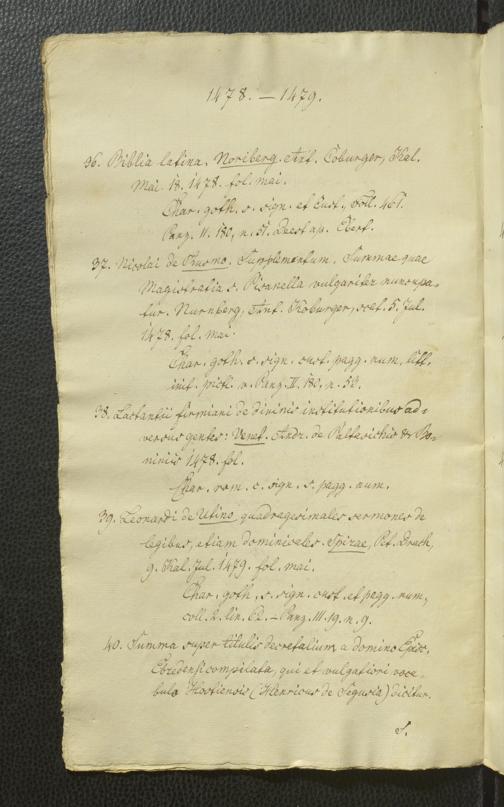 1478. — 1479.
36. Biblia latina. Noriberg. Ant. Coburger, Kal.
Mai. 18. 1478. fol. mai.
Char. goth. s. sign. et cust., foll. 461.
Panz. II. 180, n. 51. Deest ap. Ebert.
37. Nicolai de Ausmo. Supplementum. Summae quae
Magistratia s. Pisanella vulgariter nuncupa-
tur. Nurnberg, Ant. Koburger, 5. Jul.
1478. fol. mai.
Char. goth. s. sign. cust. pagg. num. litt.
init. pict. v. Panz. II. 180. n. 52.
38. Lactantii firmiani de divinis institutionibus ad-
versus gentes: Venet. Andr. de Paltasichis & Bo-
ninis 1478. fol.
Char. rom. c. sign. s. pagg. num.
39. Leonardi de Utino quadragesimales sermones de
legibus, etiam dominicales. Spirae, Pet. Drach,
9. Kal. Jul. 1479. fol. mai.
Char. goth. s. sign. cust. et pagg. num.
coll. 2. lin. 62. — Panz. III. 19. n. 9.
40. Summa super titulis decretalium a domino Episc.
Ebredensi compilata, qui et vulgatiori voca-
bulo Hostiensis (Henricus de Segusia) dicitur.
S.